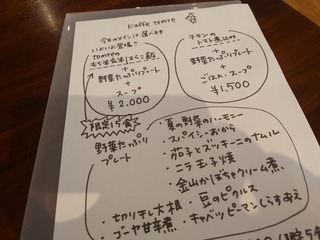 kaffe tomte
今日のメインに選べます
いよいよ登場!!
tomteの
もち米玄米エスニ飯
+
野菜たっぷりプレート
+
スープ
¥2,000
チキンの
トマト煮込み
+
野菜たっぷりプレート
+
ごはん・スープ
¥1,500
限定15食
野菜たっぷり
プレート
・夏の野菜のハーモニー
・スパイシーおから
・茄子とズッキーニのナムル
・ニラ玉子焼
・金山かぼちゃクリーム煮
・切り干し大根
・豆のピクルス
・ゴーヤ甘辛煮
・キャベツとピーマンしらすあえ